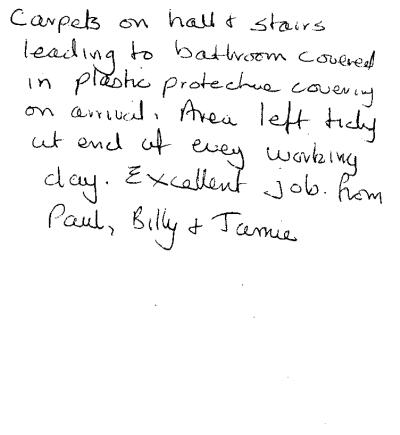 Carpets on hall & stairs
leading to bathroom covered
in plastic protective covering
on arrival. Area left tidy
at end of every working
day. Excellent job. from
Paul, Billy & Jamie